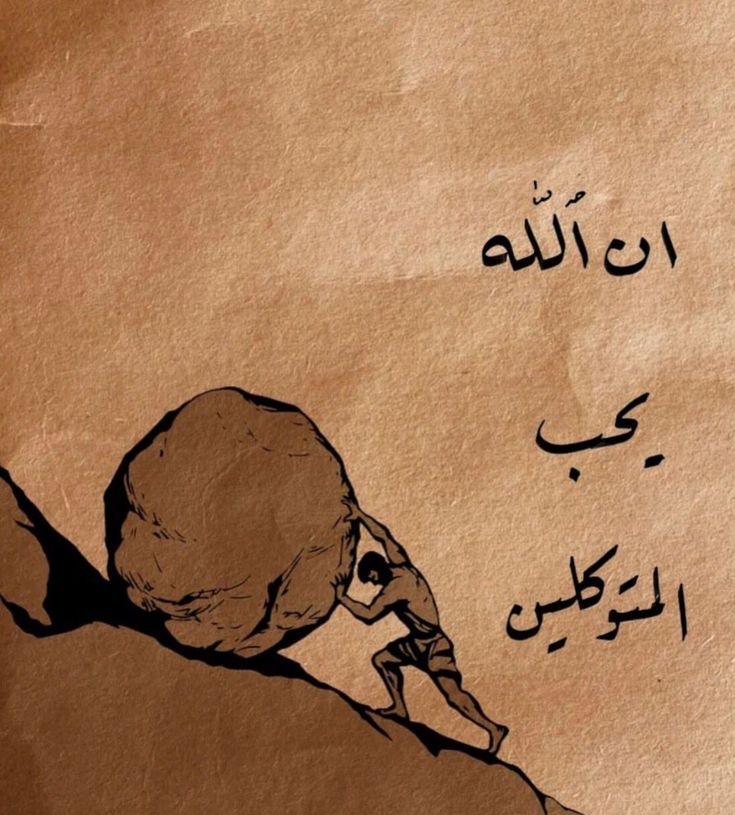 ان اللّٰه
يحب
المتوكلين